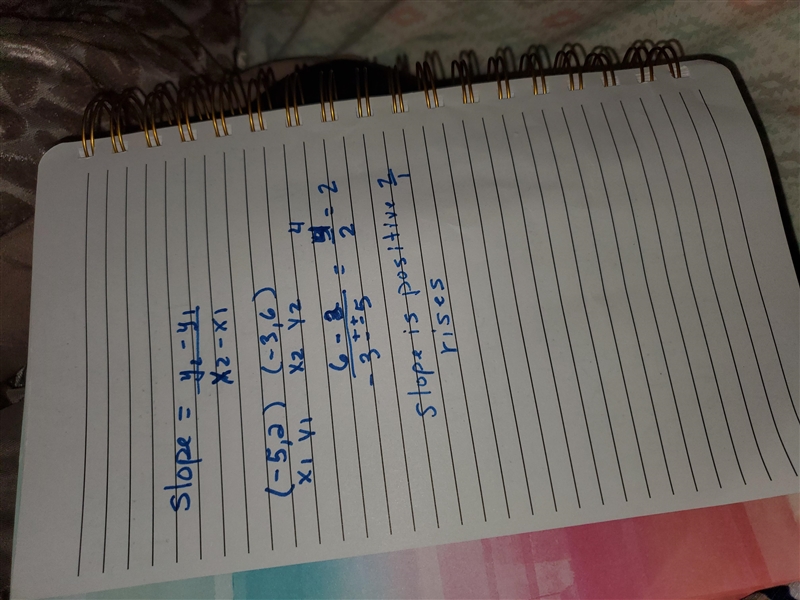 slope = y2 - y1
x2 - x1
(-5, 2) (-3, 6)
x1 y1 x2 y2
4
6 - 2 = = 2
-3 -+ -+5 2
slope is positive 2/1
rises